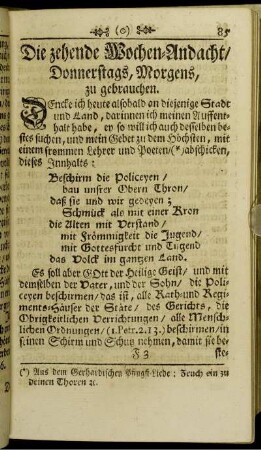 (o) 85
Die zehende Wochen-Andacht/
Donnerstags, Morgens,
zu gebrauchen.
DEncke ich heute alsobald an diejenige Stadt
und Land, darinnen ich meinen Auffent-
halt habe, er so will ich auch desselben be-
stes suchen, und mein Gebet zu dem Höchsten, mit
einem frommen Lehrer und Poeten/(*/abschicken,
dieses Innhalts:
Beschirm die Policeyen/
bau unsrer Obern Thron/
daß sie und wir gedeyen;
Schmück als mit einer Kron
die Alten mit Verstand/
mit Frömmigkeit die Jugend/
mit Gottesfurcht und Tugend
das Volck im gantzen Land.
Es soll aber GOtt der Heilige Geist/ und mit
demselben der Vater, und der Sohn/ die Poli-
ceyen beschirmen/ das ist, alle Rath und Regi-
ments-Häuser der Städte/ des Gerichts, die
Obrigkeitlichen Verrichtungen/ alle Mensch-
lichen Ordnungen/ (1. Petr. 2. 13.) beschirmen/in
seinen Schirm und Schutz nehmen, damit sie be-
F 3 ste-
(*) Aus dem Gerhardischen Pfingst-Liede: Zeuch ein zu
deinen Thoren ꝛc.